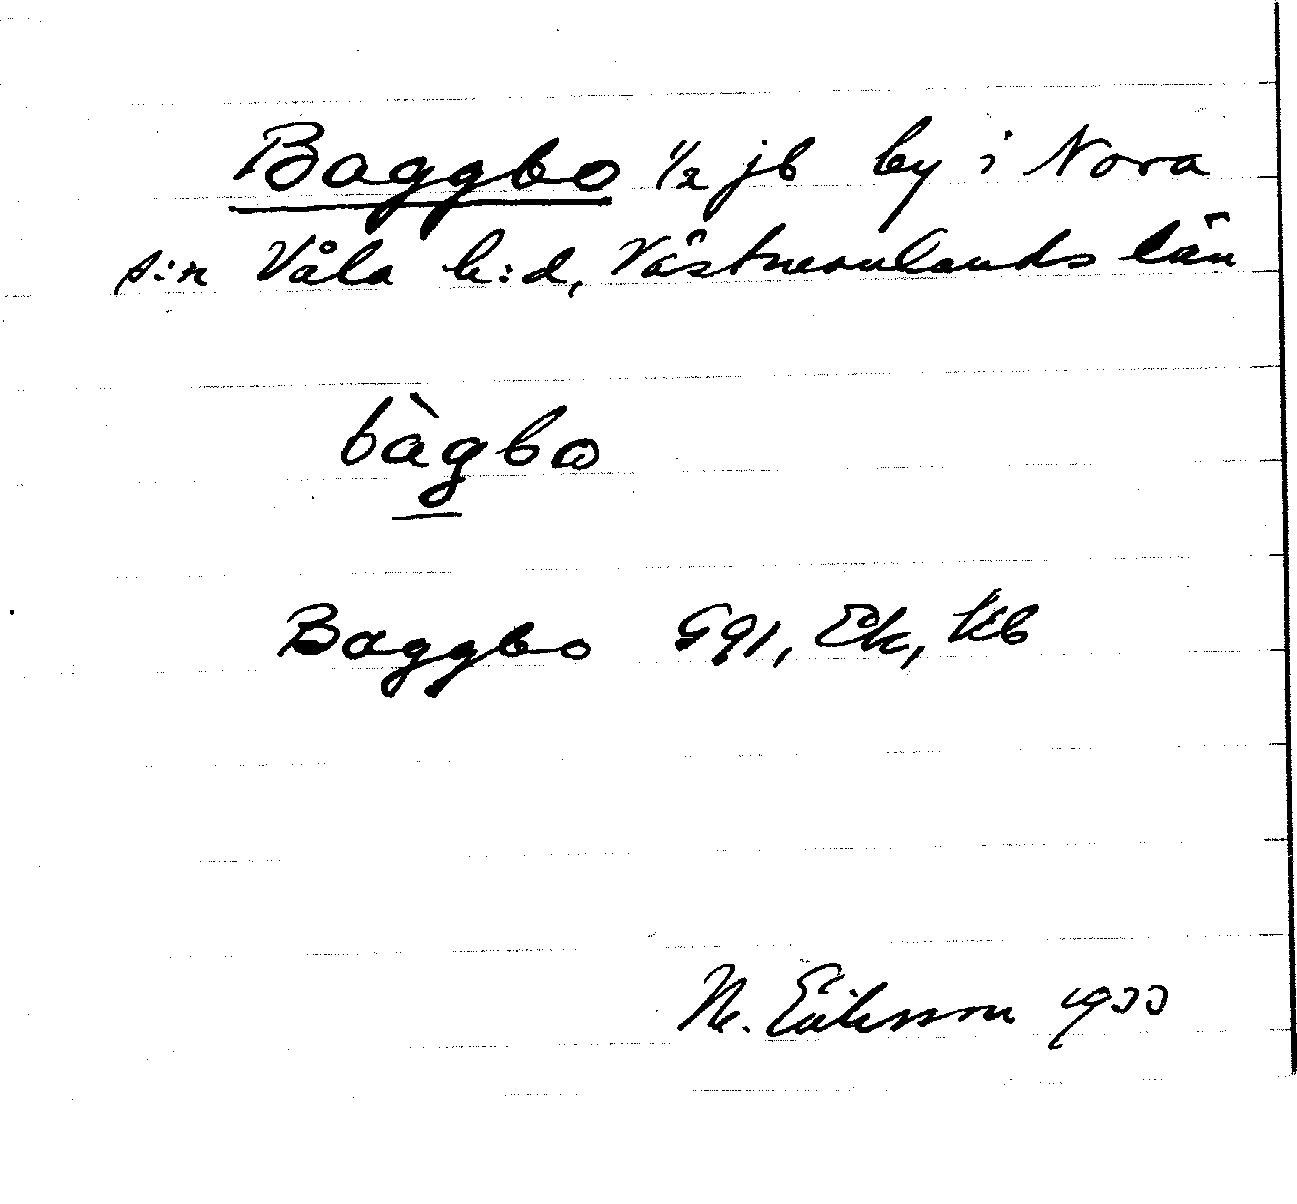 Baggbo 1/2 jb by i Nora
s:n Våla h:d, Västmanlands län
bàgbo
Baggbo Ggl, Ek, Kb
M. Eriksson 1933